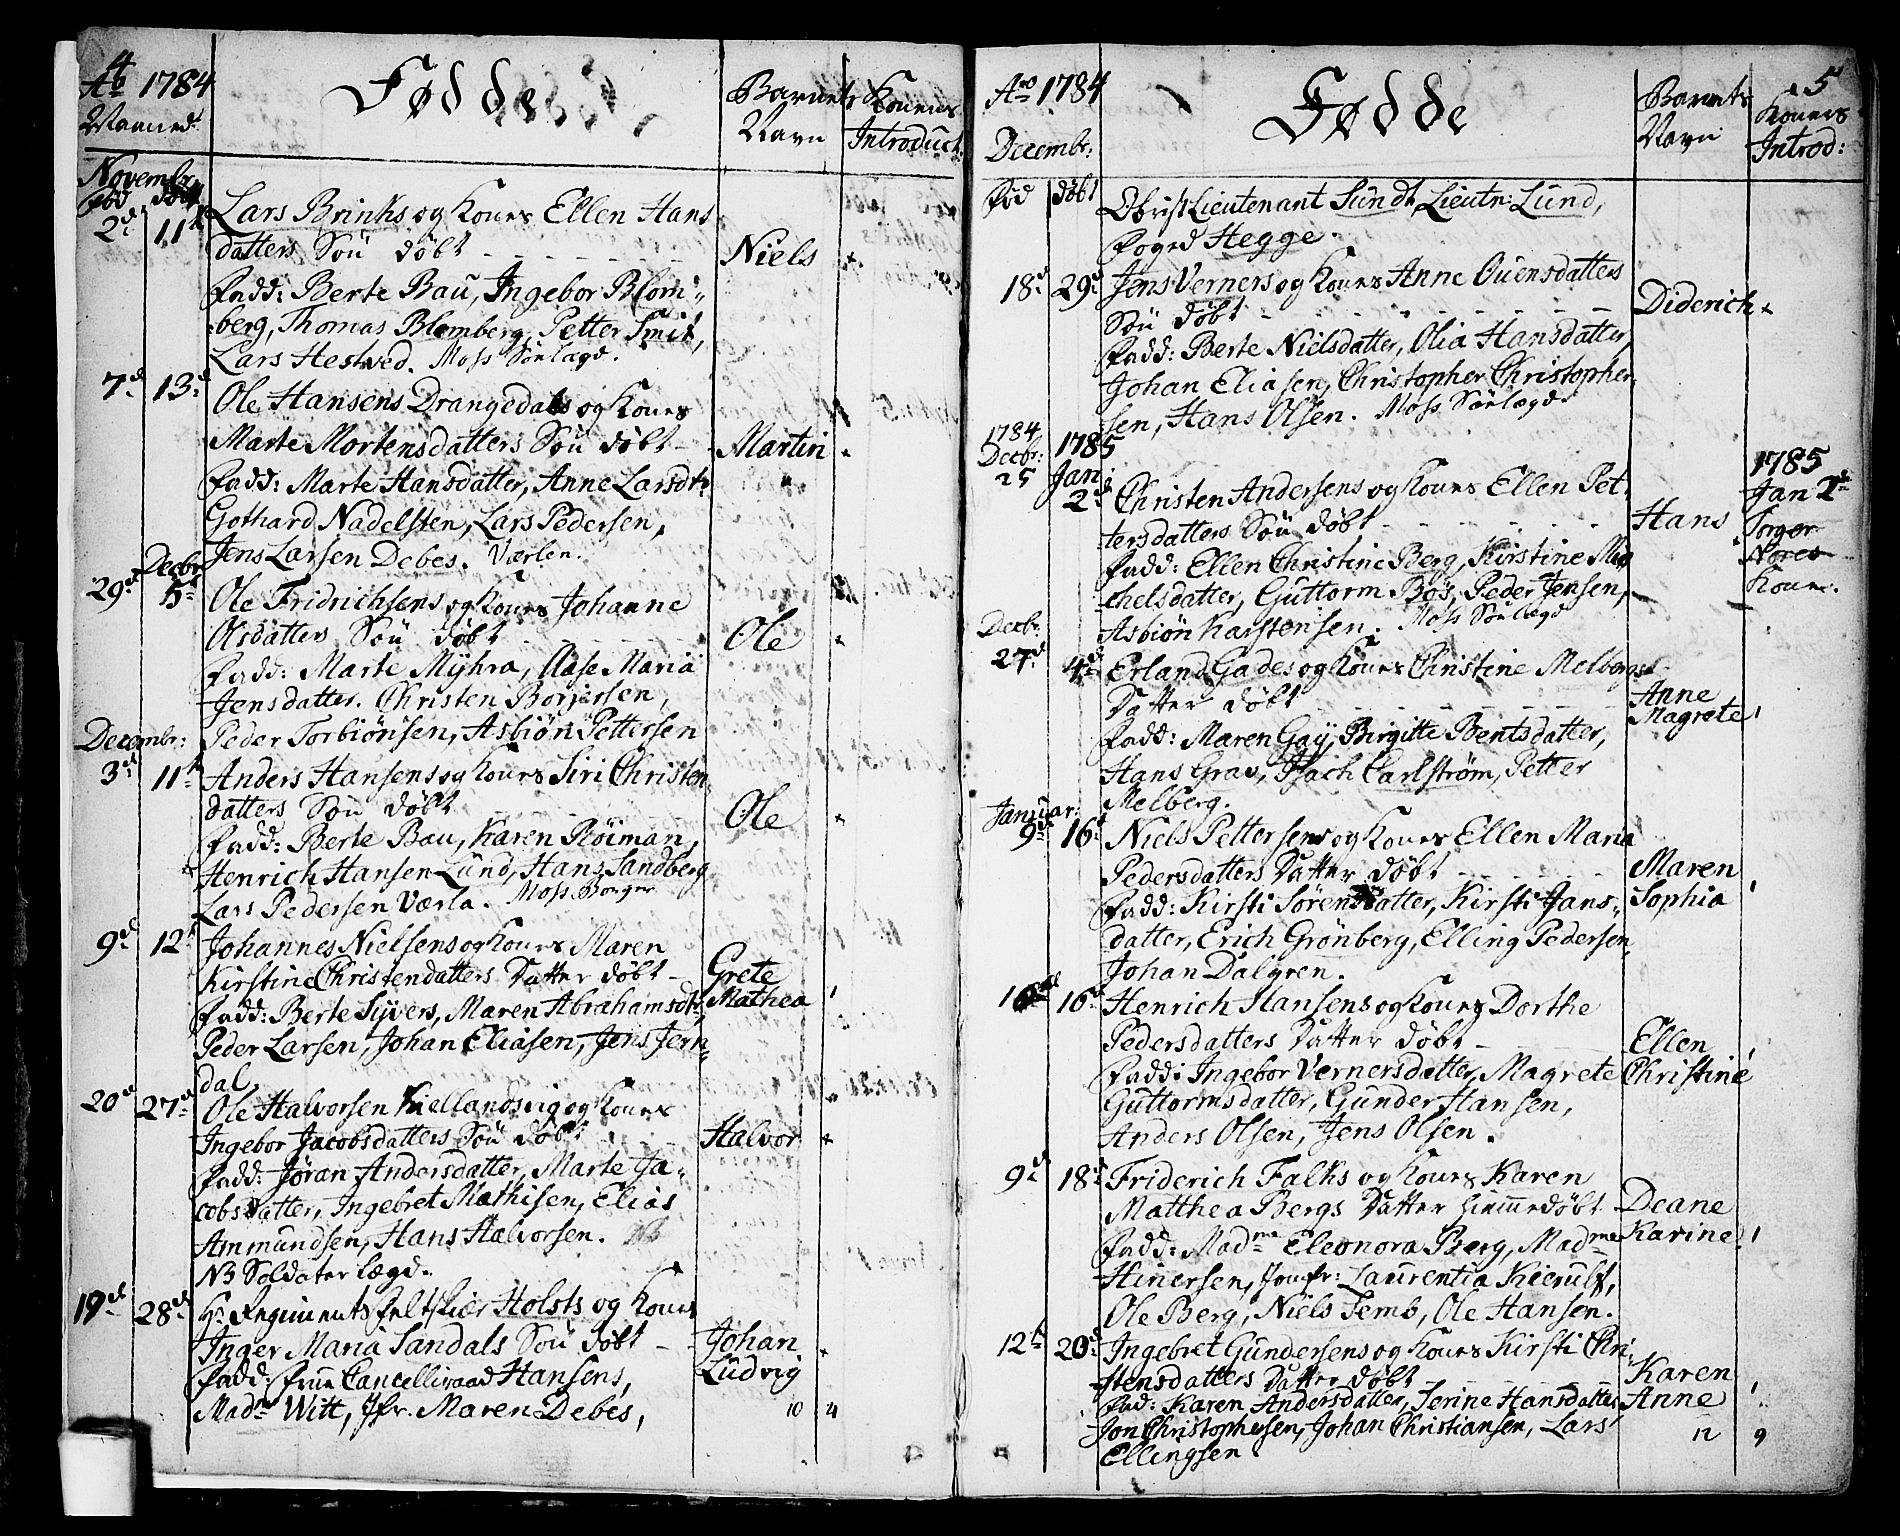 4
Ao 1784
Maaned
Fødde
Barnets
Navn
Konens
Introduct:
Novembr
fød døbt
2d 11t Lars Brinks og Kones Ellen Hans
datters Søn døbt - - - Niels
Fadd: Berte Bau, Ingebor Blom-
berg, Thomas Blomberg, Petter Smit,
Lars Hestved. Moss Sørlægd.
7d 13d Ole Hansens Drangedals og Kones
Marte Mortensdatters Søn døbt - Martin
Fadd: Marte Hansdatter, Anne Larsdtr
Gothard Nadelsten, Lars Pedersen,
Jens Larsen Debes. Værlen.
Decbr
29d 5t Ole Fridrichsens og Kones Johanne
Olsdatters Søn døbt - - - Ole
Fadd: Marte Mÿhra, Aase Maria
Jensdatter. Christen Borgersen,
Decembr: Peder Torbiönsen, Asbiön Pettersen
3d 11t Anders Hansens og Kones Siri Christen
datters Søn døbt Ole
Fadd: Berte Bau, Karen Röiman,
Henrich Hansen Lund, Hans Sandberg
Lars Pedersen Værla. Moss Borger
9d 12t Johannes Nielsens og Kones Maren
Kirstine Christendatters Datter døbt - Grete
Mathea
Fadd: Berte Sÿvers, Maren Abrahamsdtr,
Peder Larsen, Johan Eliasen, Jens Jern-
dal
20d 27d Ole Halvorsen Kiellandsvig og Kones
Ingebor Jacobsdatters Søn døbt - Halvor
Fadd: Jöran Andersdatter, Marte Ja-
cobsdatter, Ingebret Mathisen, Elias
Ammundsen, Hans Halvorsen.
NB Soldater lægd.
19d 28d Hr Regiments felt skier Holsts og Kones
Inger Maria Sandals Søn døbt - Johan
Ludvig
Fadd: Frue Cancelliraad Hansens,
Madme Witt, Jfr. Maren Debes,
10 4
5
Ao 1784
Decembr:
Fødde
Barnets
Navn
Konens
Introd:
fød døbt Obrist Lieutenant Sundt, Lieutn: Lund,
Foged Hegge.
18d 29d Jens Verners og Kones Anne Ouensdatters
Søn døbt - - - Diderich
Fadd: Berte Nielsdatter, Olia Hansdatter,
Johan Eliasen, Christopher Christopher-
sen, Hans Olsen. Moss Sørlægd
1784 1785
Decbr: Jan:
25 2d Christen Andersens og Kones Ellen Pet-
tersdatters Søn døbt - - - Hans
1785
Jan 2d
Kone.
Fadd: Ellen Christine Berg, Kirstine Mic
chelsdatter, Guttorm Bös, Peder Jensen,
Asbiön Karstensen. Moss Sørlægd
Decbr:
27d 4d Erland Gades og Kones Christine Melbergs
Datter døbt Anne
Magrete
Fadd: Maren Gaÿ, Birgitte Bentsdatter,
Hans Grav, Isach Carlström, Petter
Melberg.
Januar:
9d 16d Niels Pettersens og Kones Ellen Maria
Pedersdatters Datter døbt Maren
Sophia
Fadd: Kirsti Sörensdatter, Kirsti Jans-
datter, Erich Grönberg, Elling Pedersen,
Johan Dalgren.
16d Henrich Hansens og Kones Dorthe
Pedersdatters Datter døbt - Ellen
Christine
Fadd: Ingebor Vernersdatter, Magrete
Guttormsdatter, Gunder Hansen,
Anders Olsen, Jens Olsen.
9d 18d Friderich Falks og Kones Karen
Matthea Bergs Datter hiemmedøbt Deane
Karine
Fadd: Madme Eleonora Berg, Madme
Hinersen, Jomfr: Laurentia Kierulf,
Ole Berg, Niels Temb, Ole Hansen.
12t 20d Ingebret Gundersens og Kones Kirsti Chri-
stensdatters Datter døbt Karen
Anne
Fad: Karen Andersdatter, Terine Hansdatter
Jon Christophersen, Johan Christiansen, Lars
Ellingsen
12 9